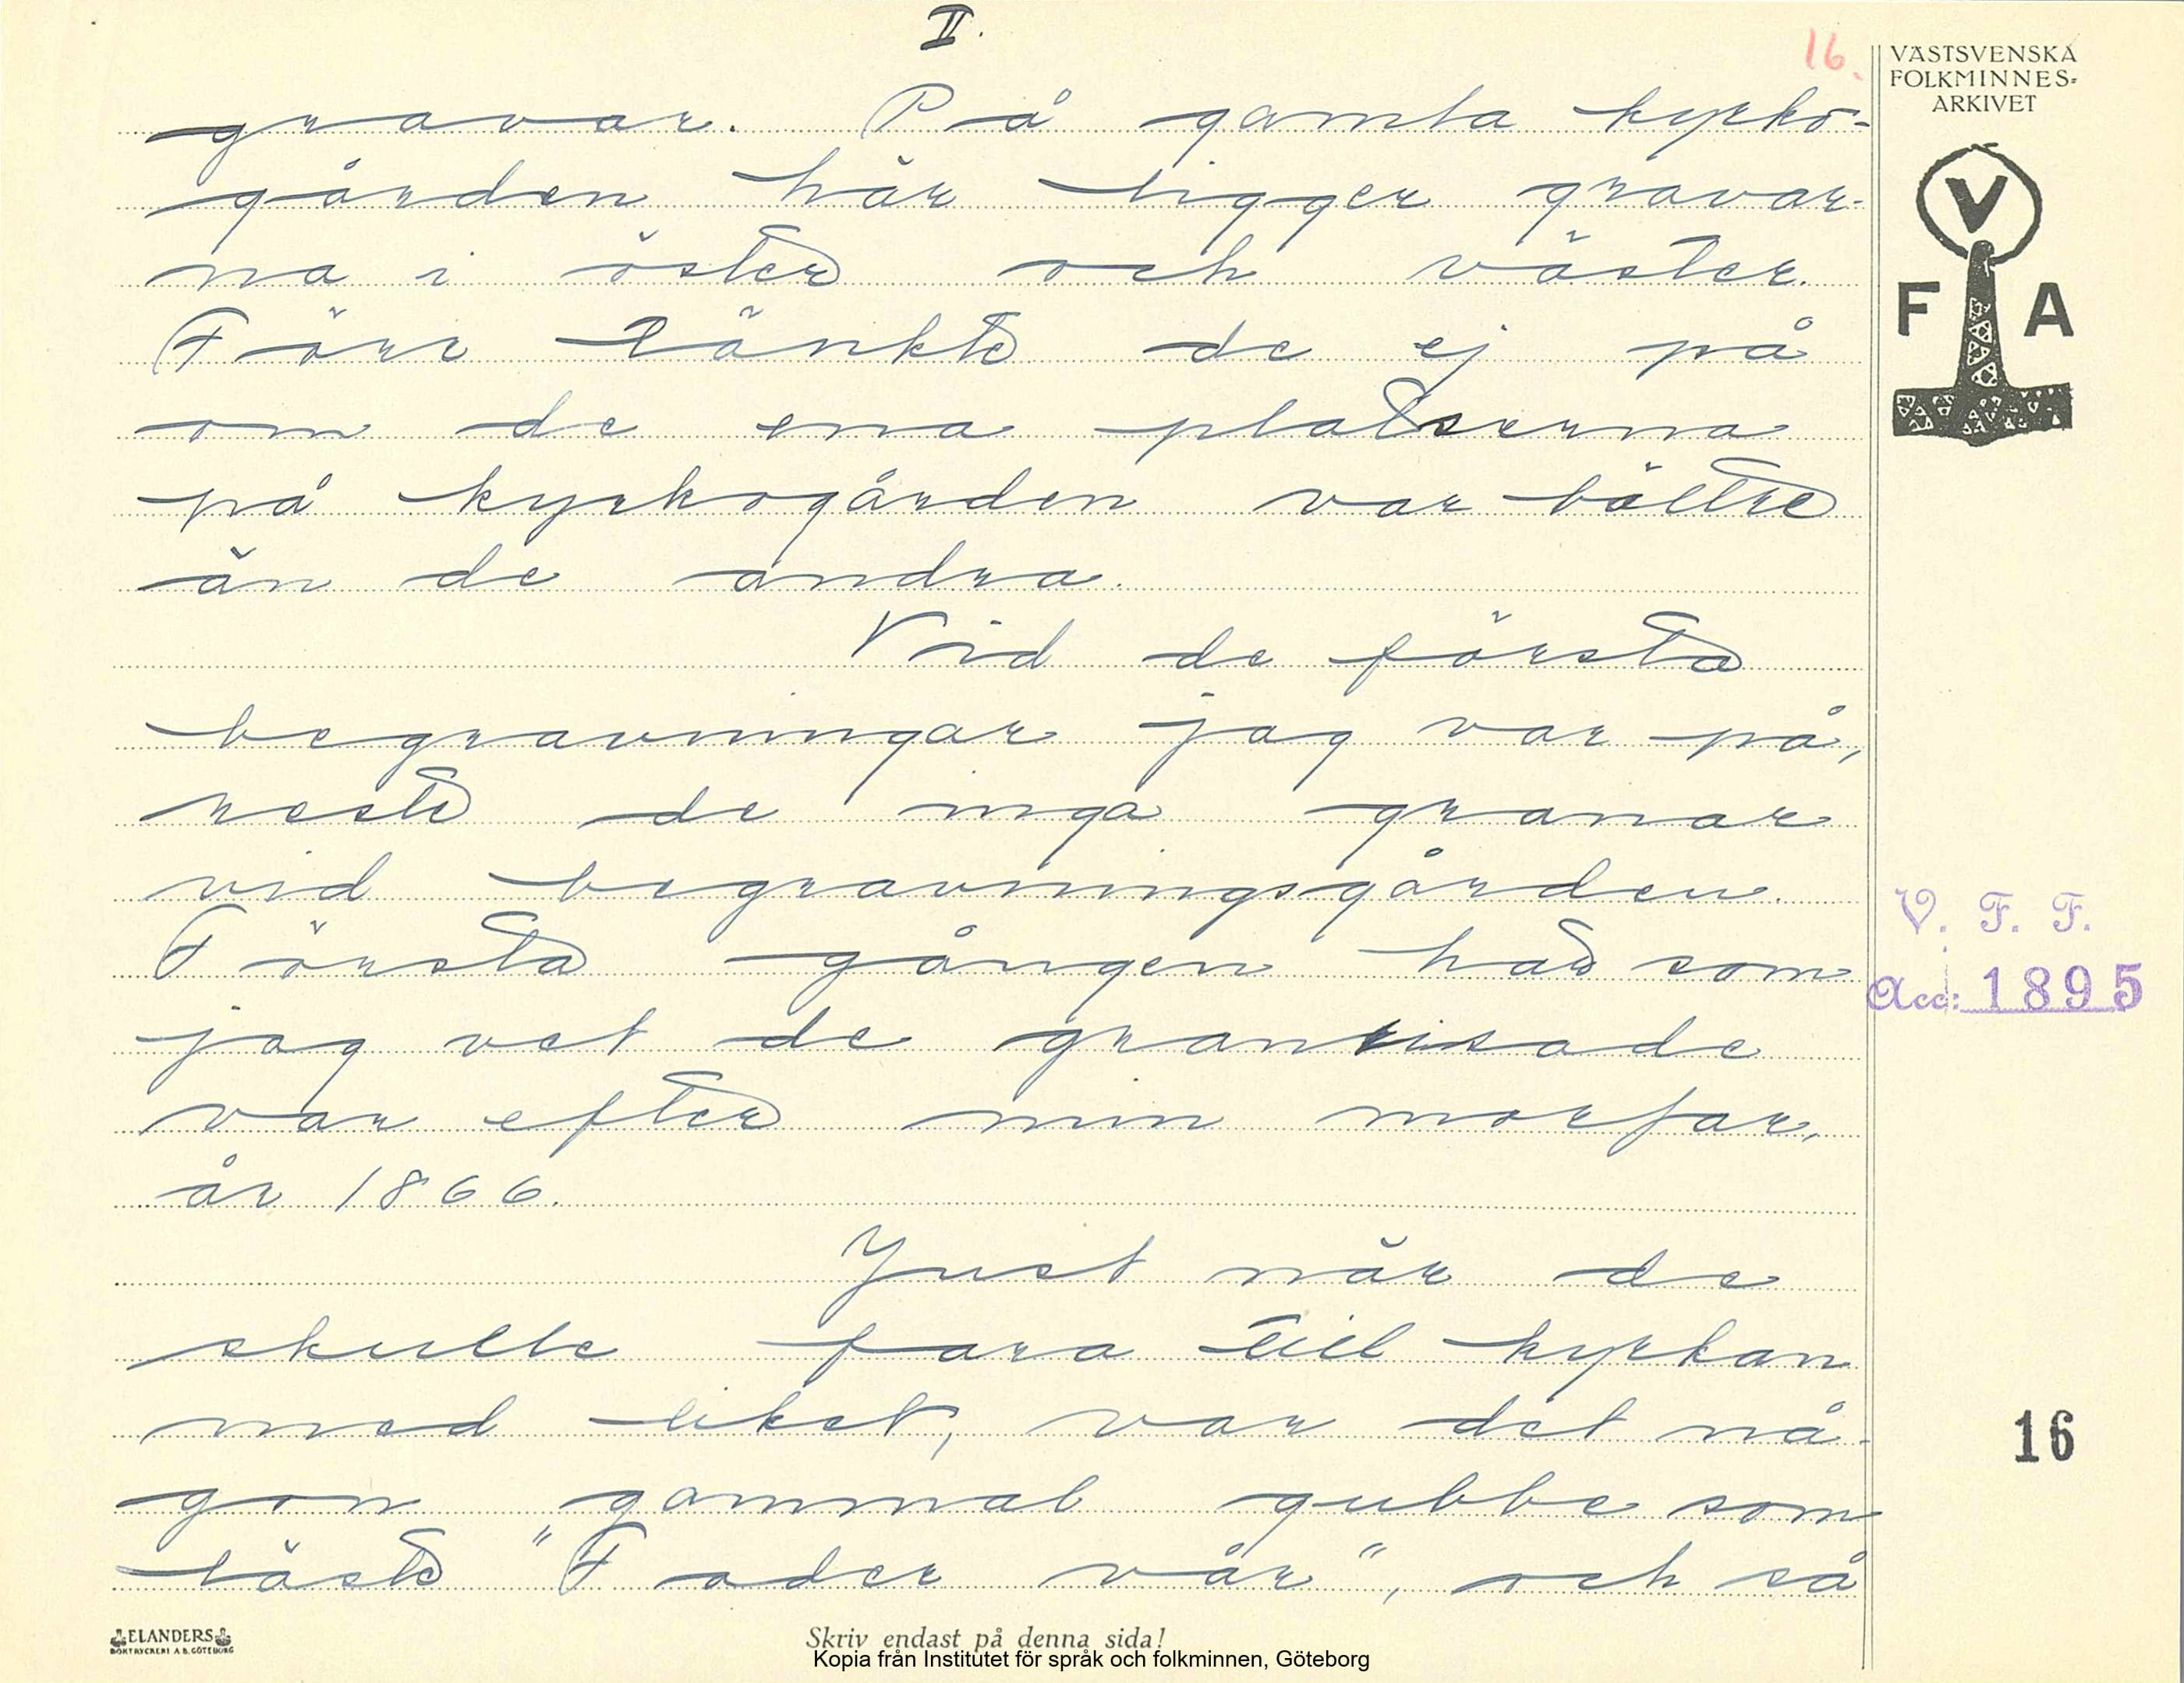 II.
16.
VÄSTSVENSKA
FOLKMINNES=
ARKIVET
V
F A
gravar. På gamla kyrko-
gården här ligger gravar-
na i öster och väster.
Förr tänkte de ej på
om de ena platserna
på kyrkogården var bättre
än de andra.
Vid de första
begravningar jag var på,
reste de inga granar
vid begravningsgården.
Första gången här som
jag vet de granrisade
var efter min morfar,
år 1866.
Just när de
skulle fara till kyrkan
med liket, var det nå-
gon gammal gubbe som
läste "Fader vår", och så
V. F. F.
Acc: 1895
16
ELANDERS
BOKTRYCKERI A.B. GÖTEBORG
Skriv endast på denna sida!
Kopia från Institutet för språk och folkminnen, Göteborg